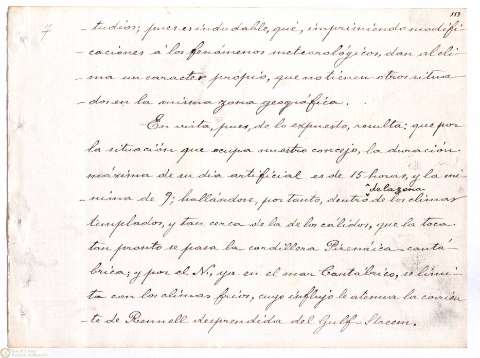 113
7
-tudios; pues es indudable, que, imprimiendo modifi-
-caciones á los fenómenos meteorológicos, dan al cli-
-ma un caracter propio, que no tienen otros situa-
-dos en la misma zona geográfica.
En vista, pues, de lo expuesto, resulta; que por
la situación que ocupa nuestro concejo, la duración
máxima de su día artificial es de 15 horas, y la mí-
nima de 9; hallándose, por tanto, dentro de los climas
de la zona
templados, y tan cerca de la de los cálidos, que la toca
tan pronto se pasa la cordillera Pirenáica-cantá-
brica; y por el N., ya en el mar Cantábrico, se limi-
ta con los climas frios, cuyo influjo le atenua la corrien-
te de Rennell desprendida del Gulf-Stream.